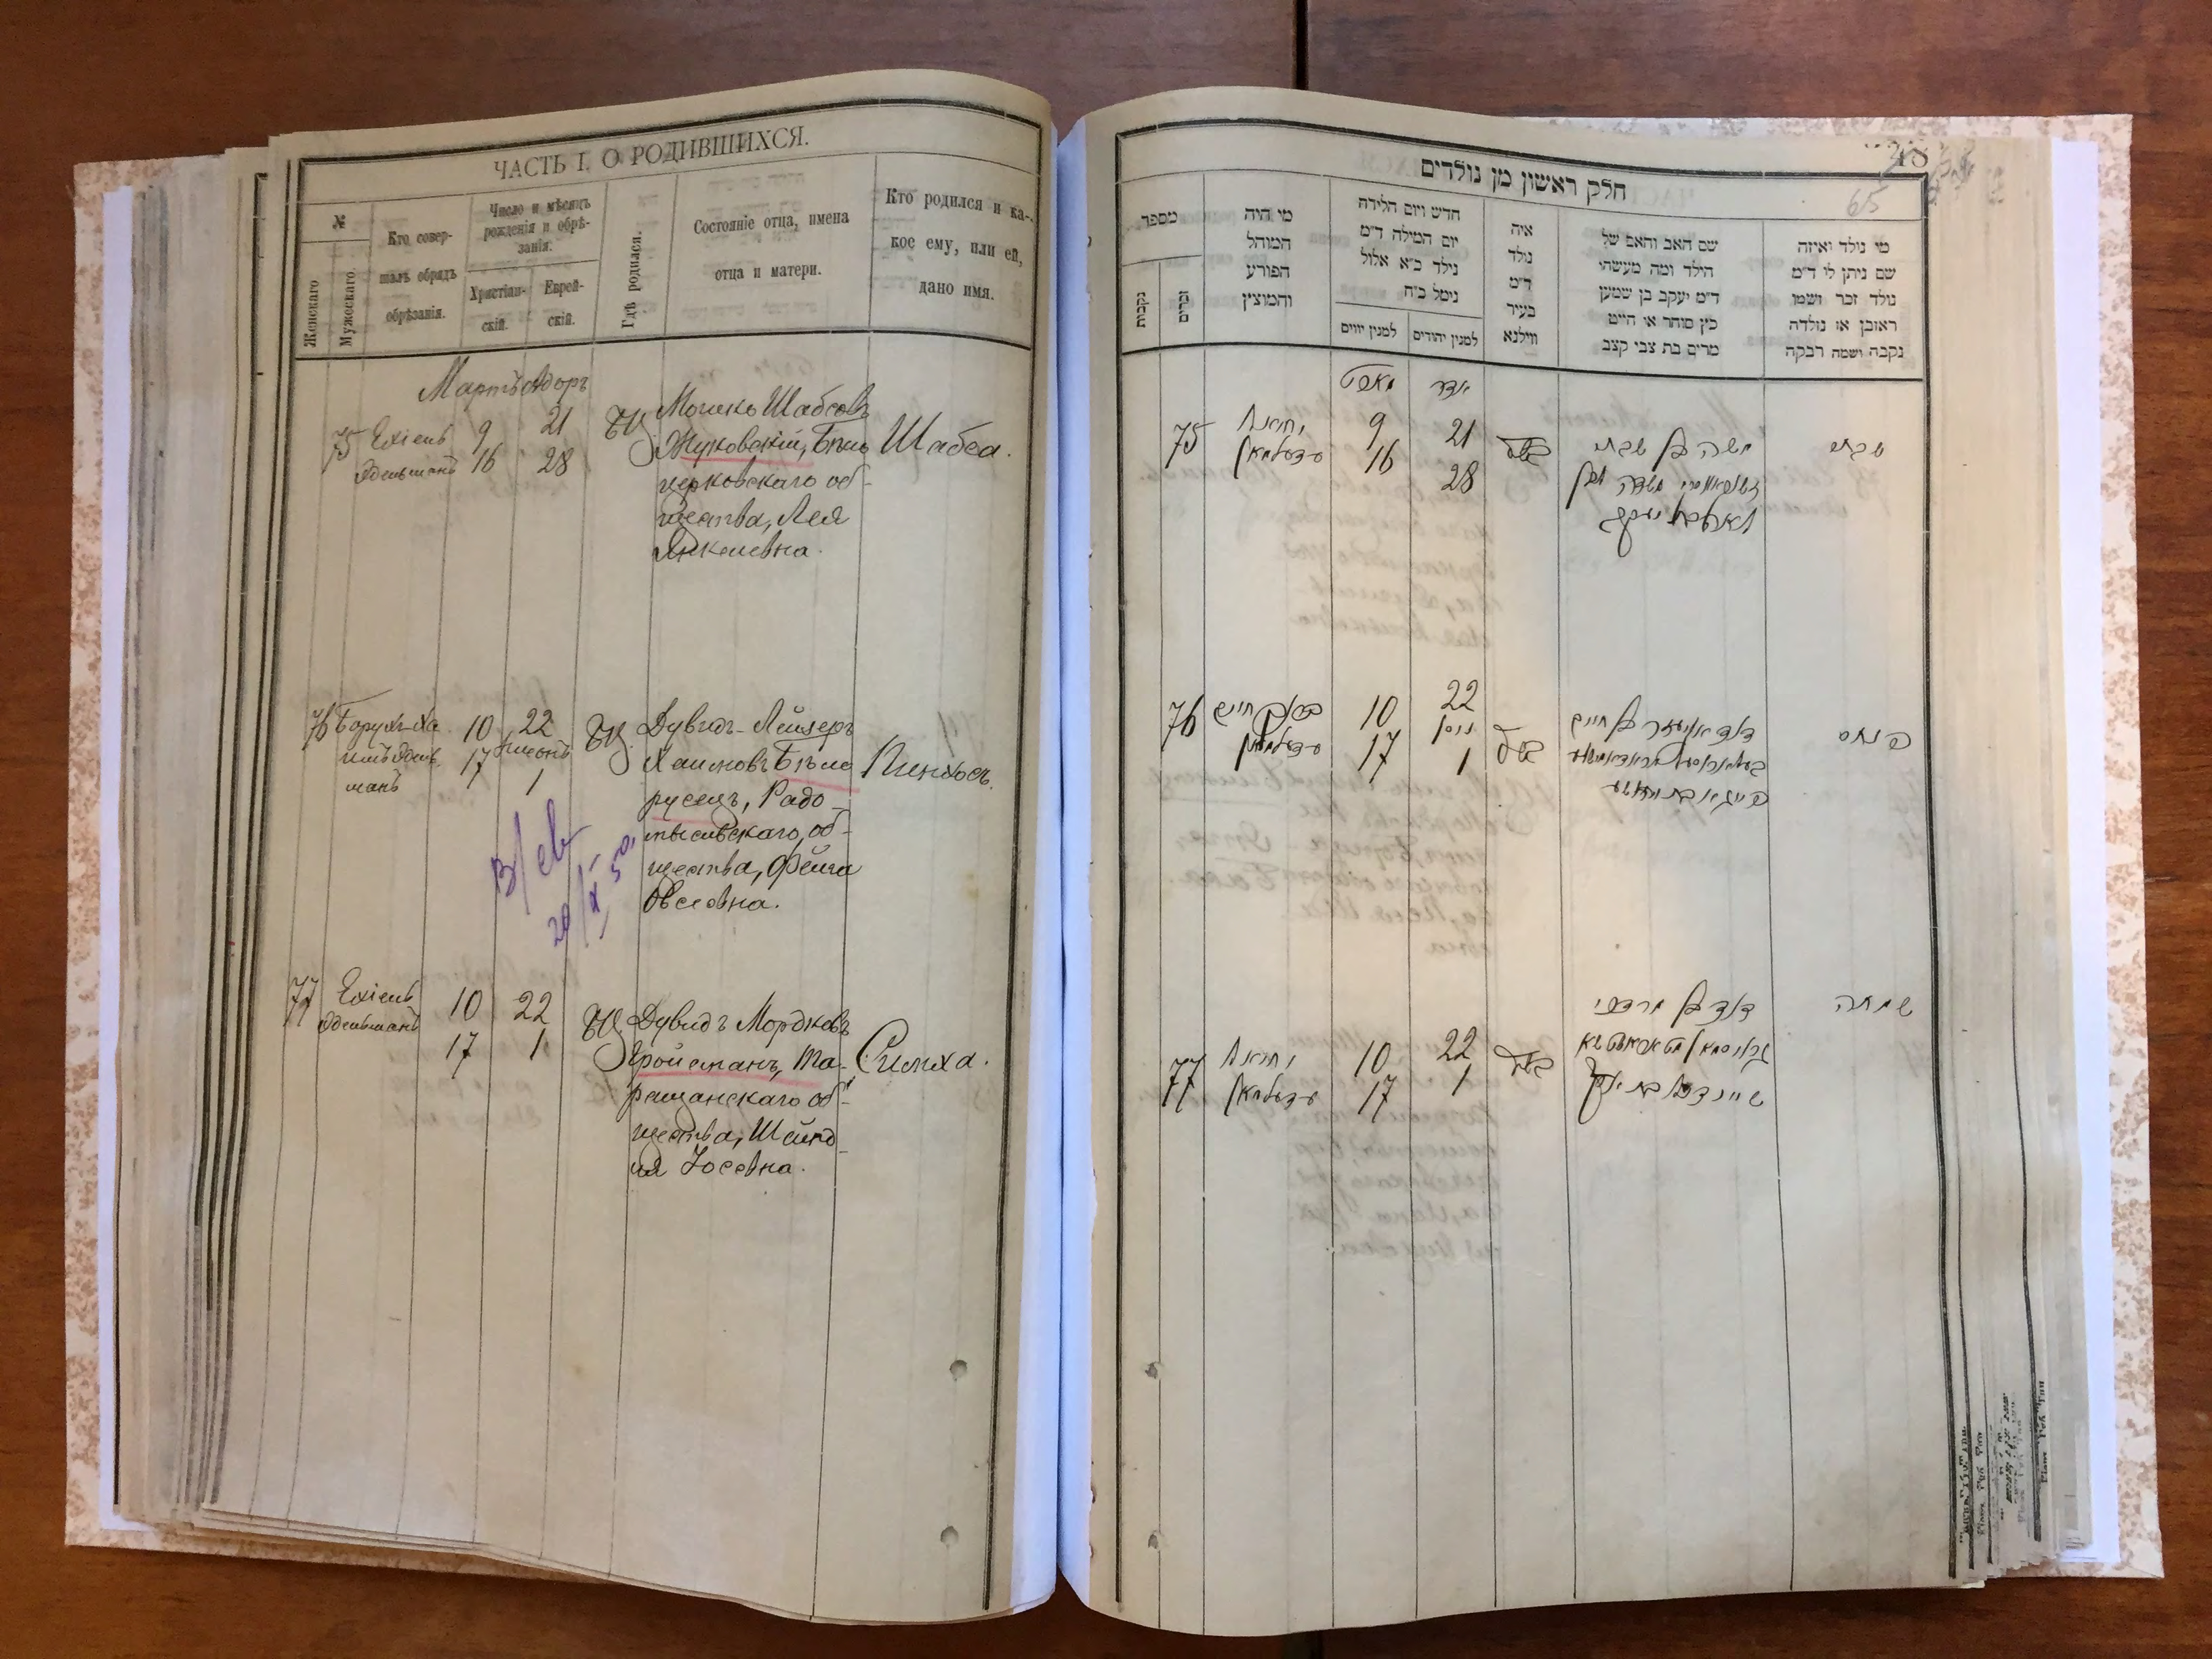 ЧАСТЬ I. О РОДИВШИХСЯ.
№
Женскаго
Мужескаго.
Кто совер-
шалъ обрядъ
обрѣзанія.
Число и мѣсяцъ
рожденія и обрѣ-
занія.
Христіан-
скій.
Еврей-
скій.
Гдѣ родился.
Состояніе отца, имена
отца и матери.
Кто родился и ка-
кое ему, или ей,
дано имя.
Мартъ Адоръ
75 Ехіель
Эдельманъ
9 21
16 28
Мошко Шабсовъ
Жуковскій, Бѣло
церковскаго об-
щества, Лея
Янкелевна.
Шабса.
76 Борухъ-Ха
имъ Эдель
манъ
10 22
Нисонъ
17 1
Дувидъ-Лейзеръ
Хаимовъ Бѣло
русецъ, Радо-
мысльскаго об-
щества, Фейга
Овсеовна.
Пинхосъ.
77 Ехіель
Эдельманъ
10 22
17 1
Дувидъ Мордковъ
Гройсманъ, Та-
ращанскаго об-
щества, Шейнд
ля Іосевна.
Симха.
48
65
חלק ראשון מן נולדים
מספר
נקבות
זכרים
מי היה
המוהל
הפורע
והמוצץ
חדש ויום הלידה
יום המילה ד״מ
נילד כ״א אלול
ניטל כ״ח
למנין יווים
למנין יהודים
איה
נולד
ד״מ
בעיר
ווילנא
שם האב והאם של
הילד ומה מעשהי
ד״מ יעקב בן שמען
כץ סוחר או חייט
מרים בת צבי קצב
מי נולד ואיזה
שם ניתן לו ד״מ
נולד זכר ושמו
ראובן או נולדה
נקבה ושמה רבקה
מארט אדר
75 יחיאל
עדעלמאן
9 21
16 28
משה בן שבתי
שבתי
76 ברוך חיים
עדעלמאן
10 22
ניסן
17 1
דוד אליעזר בן חיים
פנחס
77 יחיאל
עדעלמאן
10 22
17 1
דוד בן מרדכי
שיינדל בת יוסף
שמחה